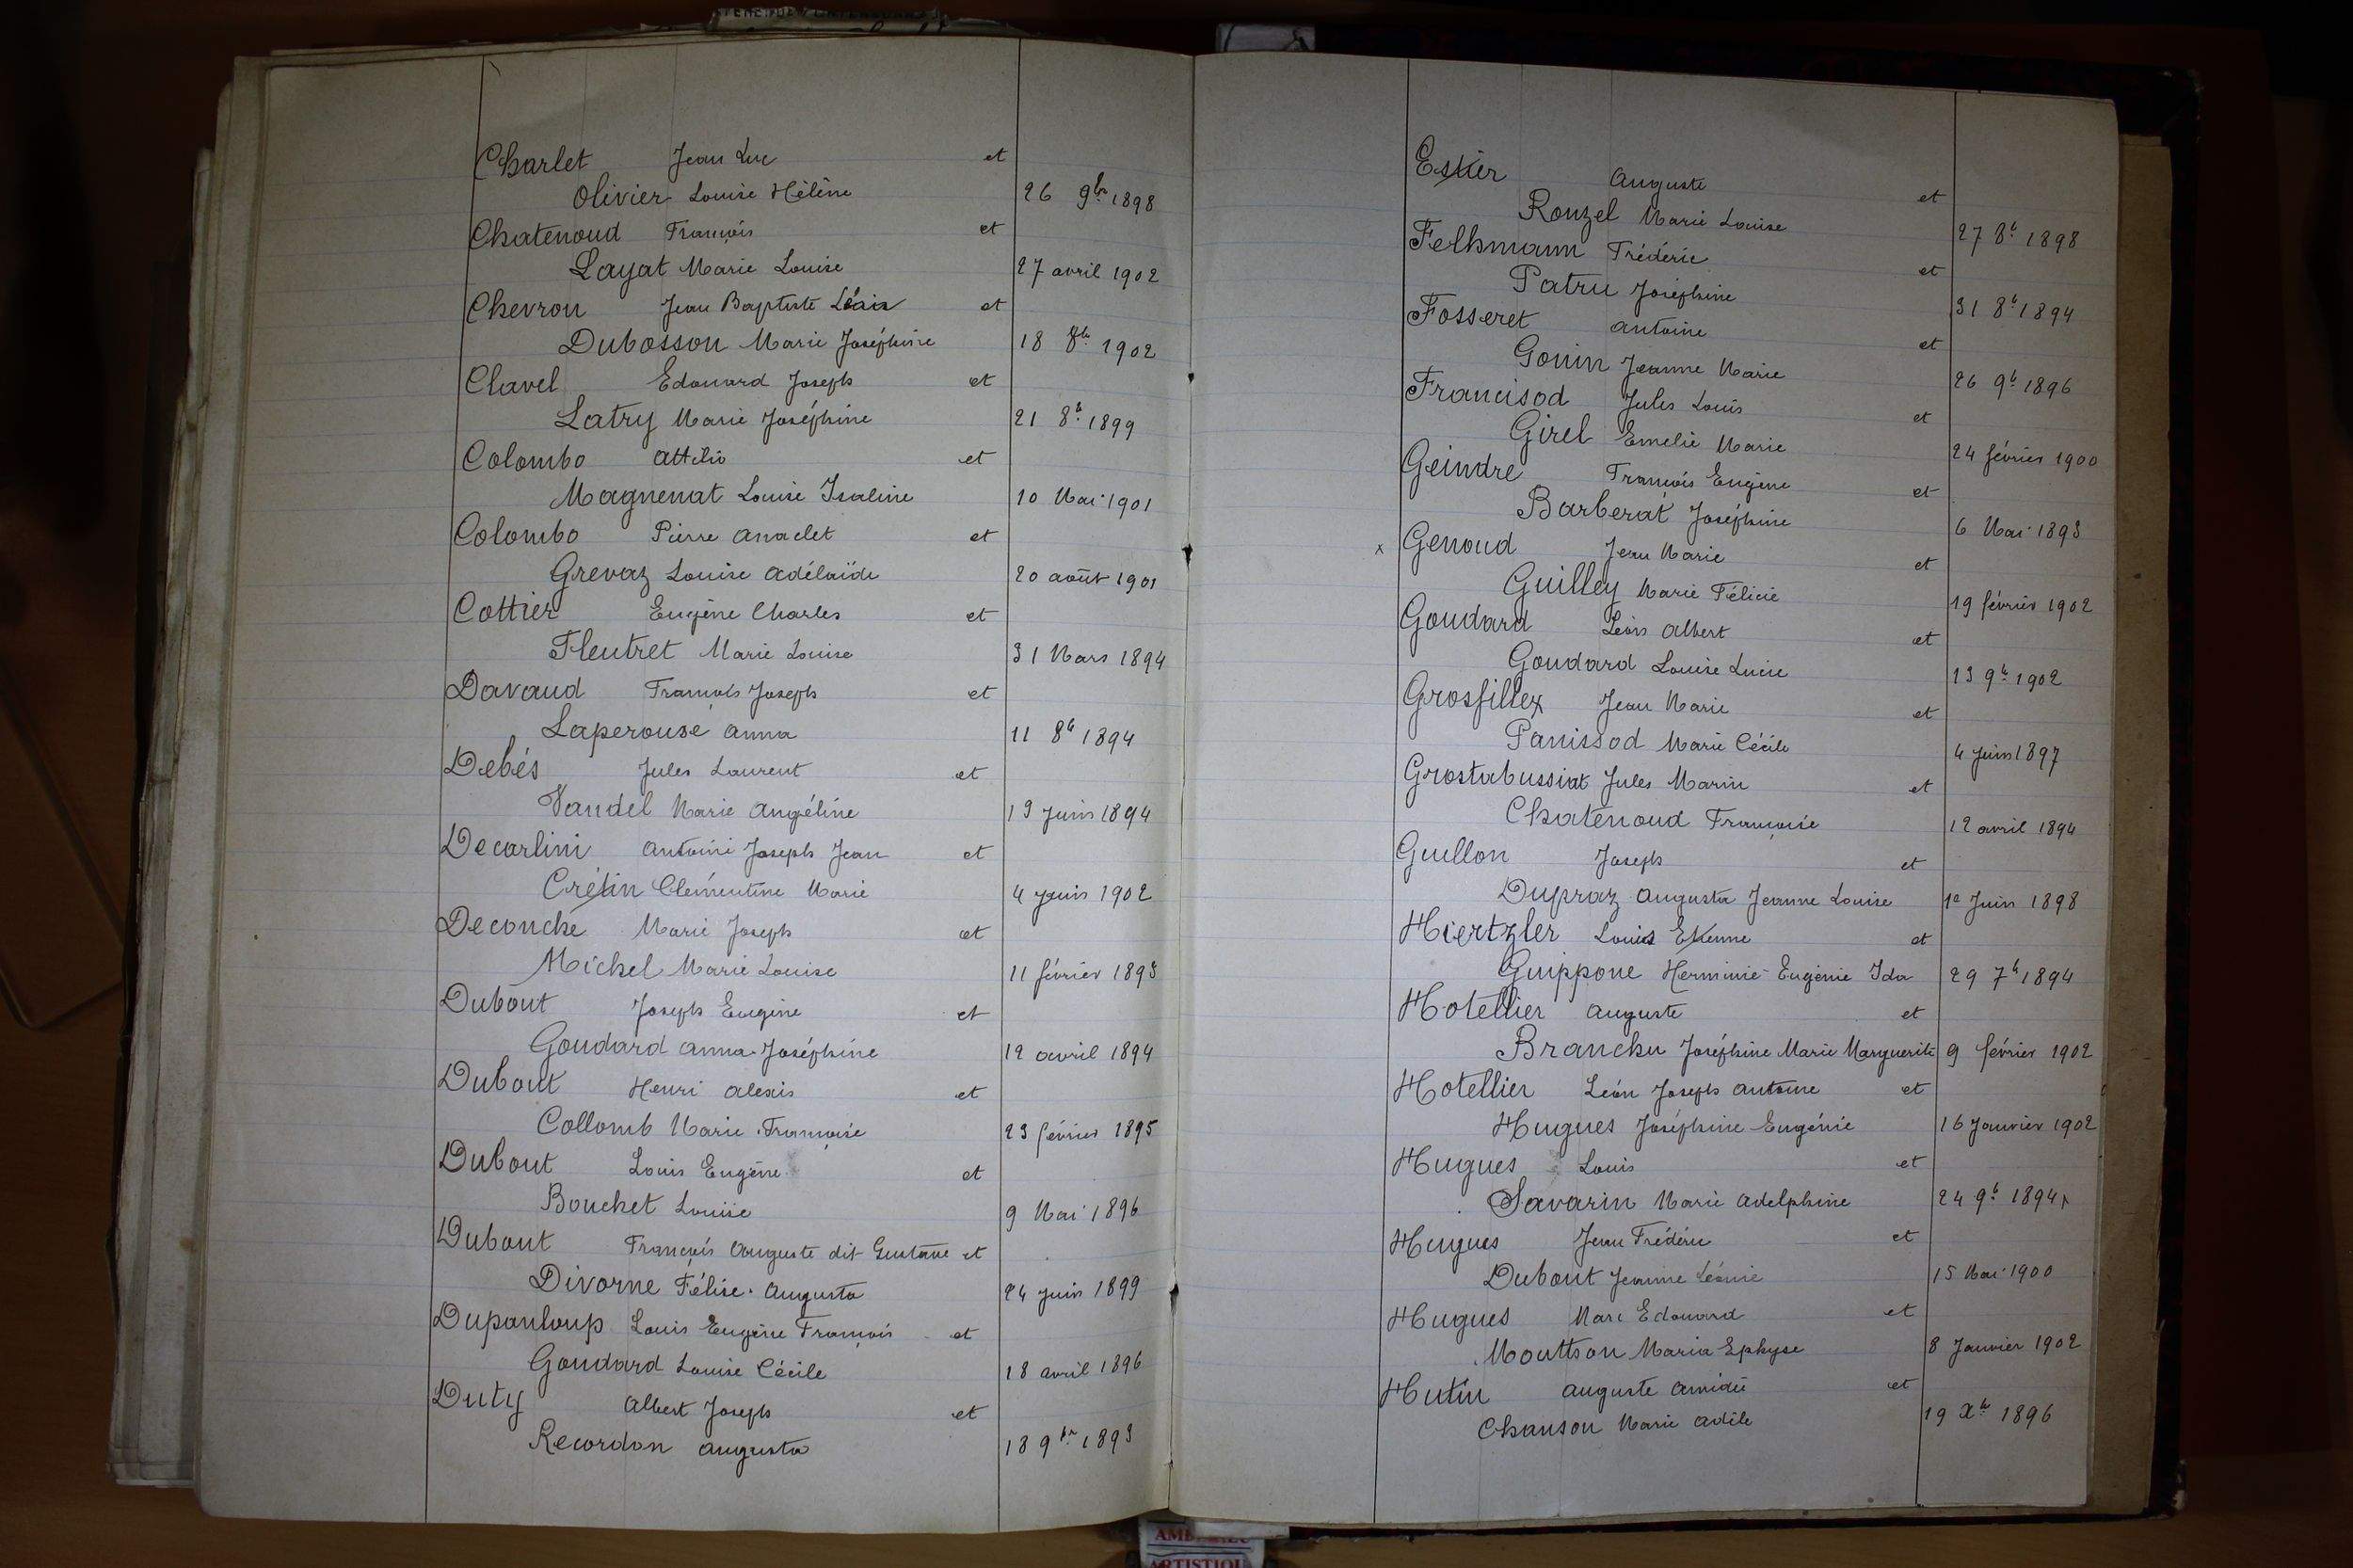 Charlet Jean Luc et
Olivier Louise Hélène 26 9bre 1898
Chatenoud François et
Layat Marie Louise 27 avril 1902
Chevron Jean Baptiste et
Dubosson Marie Joséphine 18 8bre 1902
Clavel Edouard Joseph et
Latry Marie Joséphine 21 8b 1899
Colombo Attilio et
Magnenat Louise Isaline 10 Mai 1901
Colombo Pierre Anaclet et
Grevaz Louise Adélaïde 20 août 1901
Cottier Eugène Charles et
Fleutret Marie Louise 31 Mars 1894
Davaud François Joseph et
Laperouse Anna 11 8b 1894
Debés Jules Laurent et
Vandel Marie Angéline 19 Juin 1894
Decarlini Antoine Joseph Jean et
Crétin Clémentine Marie 4 Juin 1902
Deconche Marie Joseph et
Michel Marie Louise 11 février 1893
Dubout Joseph Eugène et
Goudard Anna Joséphine 12 avril 1894
Dubout Henri Alexis et
Collomb Marie Françoise 23 février 1895
Dubout Louis Eugène et
Bouchet Louise 9 Mai 1896
Dubout François Auguste dit Gustave et
Divorne Félise Augusta 24 juin 1899
Dupanloup Louis Eugène François et
Goudard Louise Cécile 18 avril 1896
Duty Albert Joseph et
Recordon Augusta 18 9bre 1893
Eskier Auguste et
Rouzel Marie Louise 27 8b 1898
Felhmann Frédéric et
Patru Joséphine 31 8b 1894
Fosseret Antoine et
Gonin Jeanne Marie 26 9b 1896
Francisod Jules Louis et
Girel Emelie Marie 24 février 1900
Geindre François Eugène et
Barberat Joséphine 6 Mai 1893
x Genoud Jean Marie et
Guilley Marie Félicie 19 février 1902
Goudard Léon Albert et
Goudard Louise Lucie 13 9b 1902
Grosfillex Jean Marie et
Panissod Marie Cécile 4 Juin 1897
Grostabussiat Jules Marin et
Chatenoud Françoise 12 avril 1894
Guillon Joseph et
Dupraz Augusta Jeanne Louise 1e Juin 1898
Hiertzler Louis Etienne et
Guippone Herminie Eugénie Ida 29 7b 1894
Hotellier Auguste et
Branchu Joséphine Marie Marguerite 9 février 1902
Hotellier Léon Joseph Antoine et
Hugues Joséphine Eugénie 16 Janvier 1902
Hugues Louis et
Savarin Marie Adelphine 24 9b 1894
Hugues Jean Frédéric et
Dubout Jeanne Léonie 15 Mai 1900
Hugues Marc Edouard et
Mouttson Maria Ephyse 8 Janvier 1902
Hutin Auguste Amidée et
Chanson Marie Adèle 19 Xb 1896